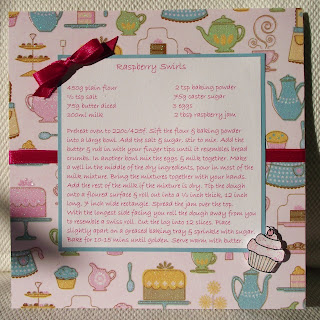 Raspberry Swirls
450g plain flour 2 tsp baking powder
½ tsp salt 75g caster sugar
75g butter diced 2 eggs
200ml milk 2 tbsp raspberry jam
Preheat oven to 220c/425f. Sift the flour & baking powder
into a large bowl. Add the salt & sugar, stir to mix. Add the
butter & rub in with your finger tips until it resembles bread
crumbs. In another bowl mix the eggs & milk together. Make
a well in the middle of the dry ingredients, pour in most of the
milk mixture. Bring the mixture together with your hands.
Add the rest of the milk if the mixture is dry. Tip the dough
onto a floured surface & roll out into a ½ inch thick, 12 inch
long, 9 inch wide rectangle. Spread the jam over the top.
With the longest side facing you roll the dough away from you
to resemble a swiss roll. Cut the log into 12 slices. Place
slightly apart on a greased baking tray & sprinkle with sugar.
Bake for 10-15 mins until golden. Serve warm with butter.